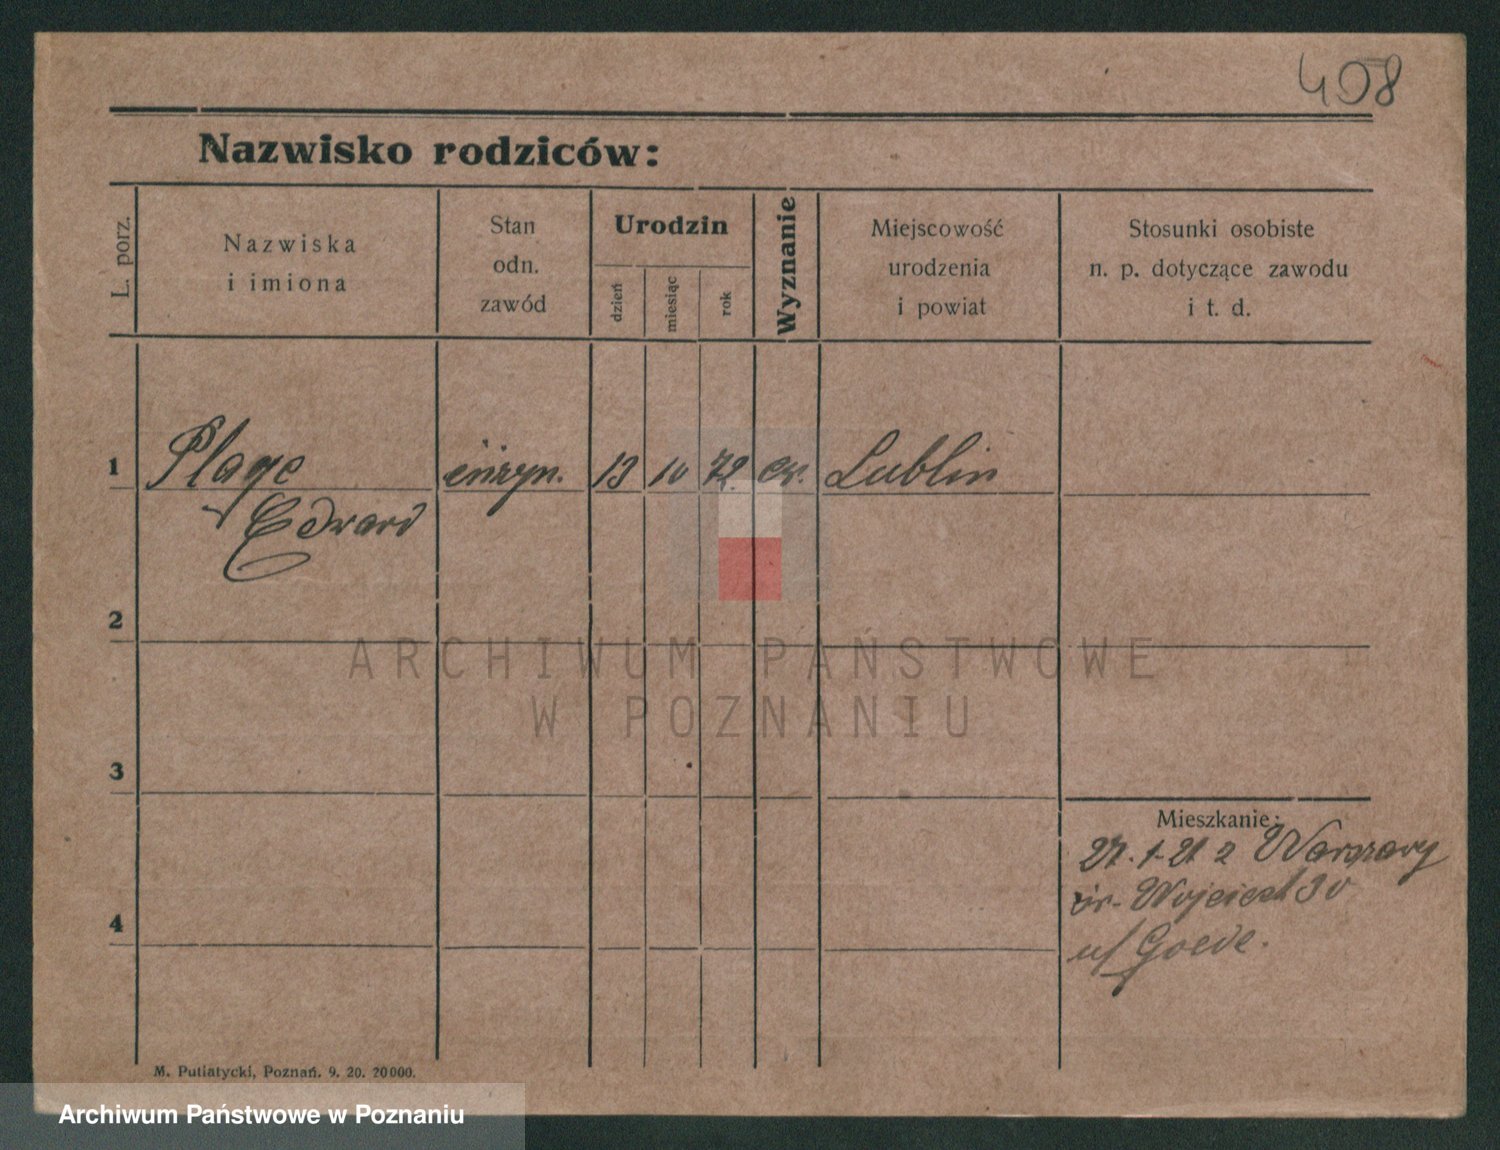 408
Nazwisko rodziców:
L. porz.
Nazwiska
i imiona
Stan
odn.
zawód
Urodzin
dzień
miesiąc
rok
Wyznanie
Miejscowość
urodzenia
i powiat
Stosunki osobiste
n. p. dotyczące zawodu
i t. d.
1 Plage inżyn. 13 10 72 ew. Lublin
Edward
2
ARCHIWUM PAŃSTWOWE
W POZNANIU
3
Mieszkanie:
27. 1. 21 z Warszawy
św. Wojciech 30
4
u/ Goede.
M. Putiatycki, Poznań. 9. 20. 20000.
Archiwum Państwowe w Poznaniu